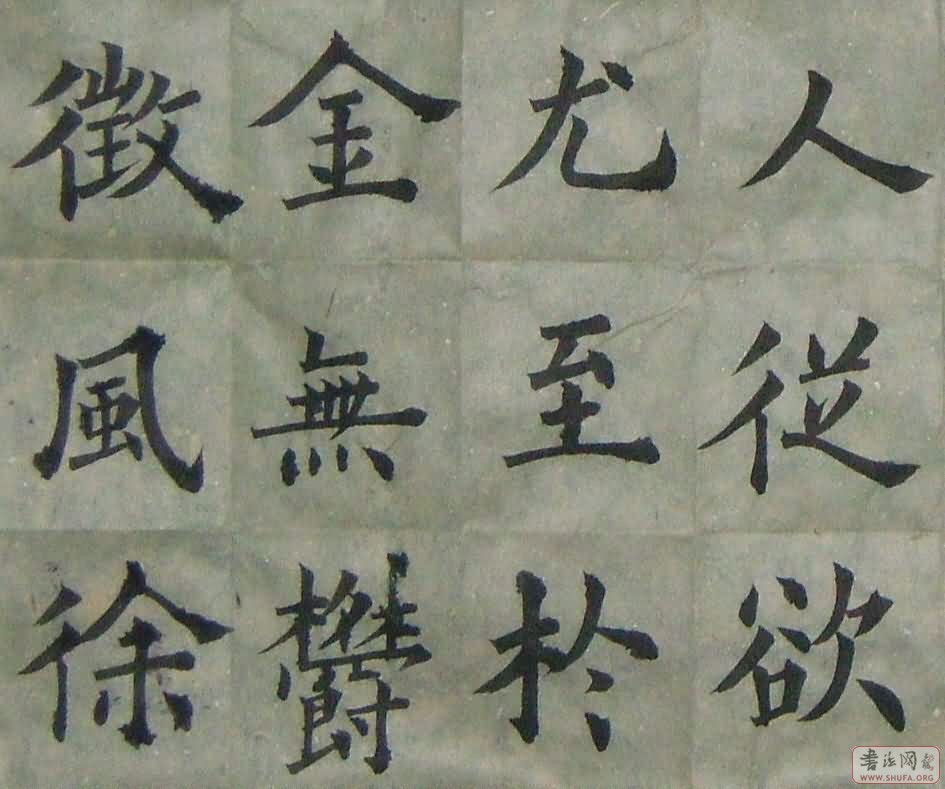 人從欲
尤至於
金無鬱
徵風徐
书法网
WWW.SHUFA.ORG